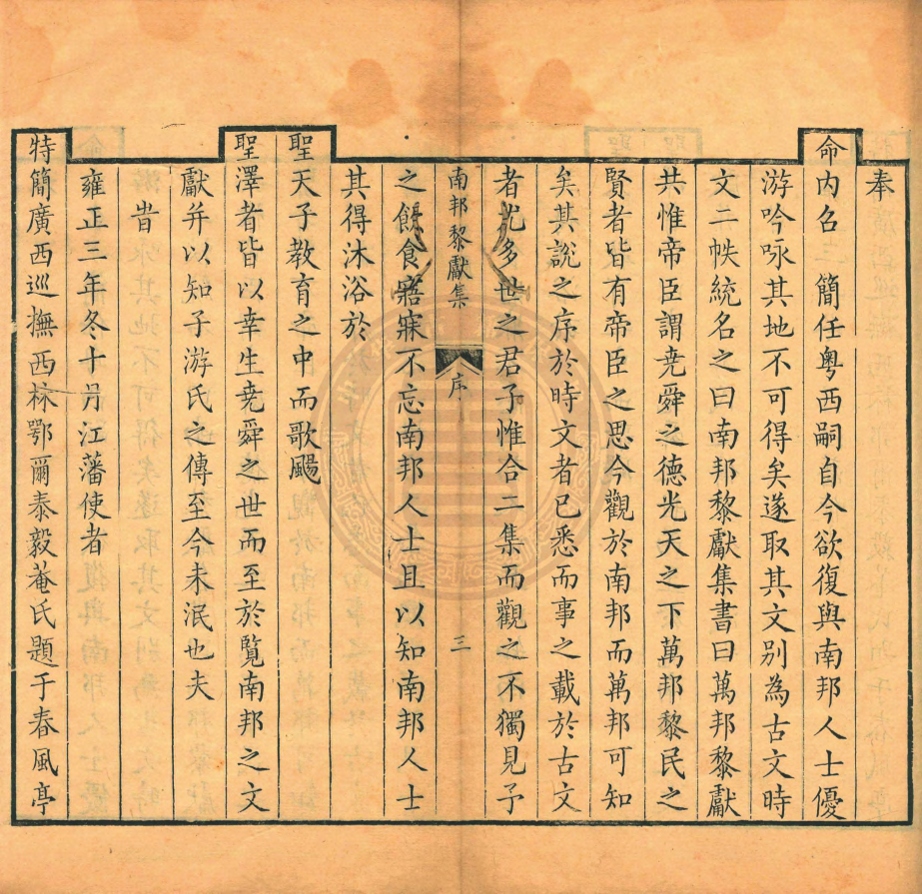 奉
命內召簡任粵西嗣自今欲復與南邦人士優
游吟咏其地不可得矣遂取其文別為古文時
文二帙統名之曰南邦黎獻集書曰萬邦黎獻
共惟帝臣謂堯舜之德光天之下萬邦黎民之
賢者皆有帝臣之思今觀於南邦而萬邦可知
矣其說之序於時文者已悉而事之載於古文
者尤多世之君子惟合二集而觀之不獨見予
南邦黎獻集 序 三
之餼食寤寐不忘南邦人士且以知南邦人士
其得沐浴於
聖天子教育之中而歌颺
聖澤者皆以幸生堯舜之世而至於覽南邦之文
獻并以知子游氏之傳至今未泯也夫
旹
雍正三年冬十月江藩使者
特簡廣西巡撫西林鄂爾泰毅菴氏題于春風亭